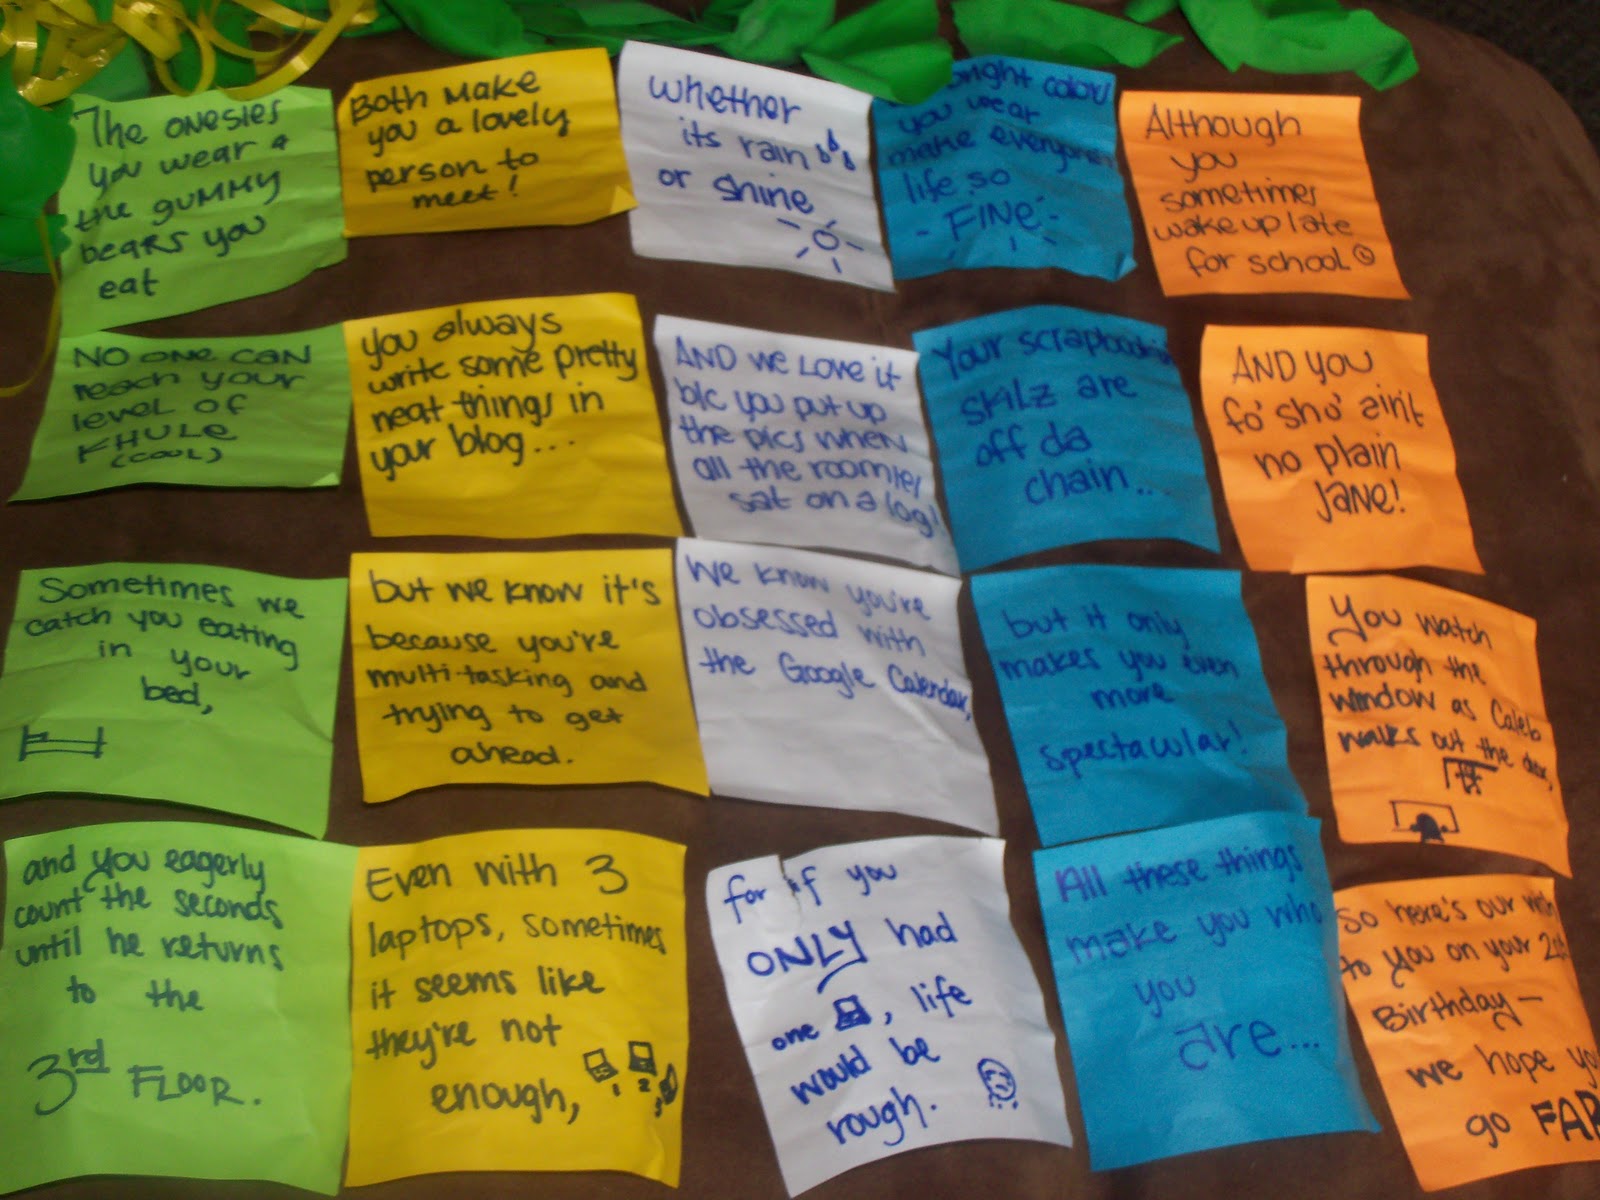 The onesies
you wear &
the gummy
bears you
eat
Both make
you a lovely
person to
meet!
whether
its rain
or shine
bright colors
you wear
make everyones
life so
- FINE -
Although
you
sometimes
wake up late
for school
NO ONE CAN
reach your
level of
KHULE
(COOL)
you always
write some pretty
neat things in
your blog...
AND we LOVE it
b/c you put up
the pics when
all the roomies
sat on a log!
Your scrapbookin
skilz are
off da
chain...
AND you
fo' sho' ain't
no plain
JANE!
Sometimes we
catch you eating
in your
bed,
but we know it's
because you're
multi-tasking and
trying to get
ahead.
We know you're
obsessed with
the Google Calendar,
but it only
makes you even
more
spectacular!
You watch
through the
window as Caleb
walks out the door,
and you eagerly
count the seconds
until he returns
to the
3rd FLOOR.
Even with 3
laptops, sometimes
it seems like
they're not
enough,
1 2 3
for if you
ONLY had
one , life
would be
rough.
All these things
make you who
you
are...
So here's our wish
to you on your 21st
Birthday—
we hope you
go FAR